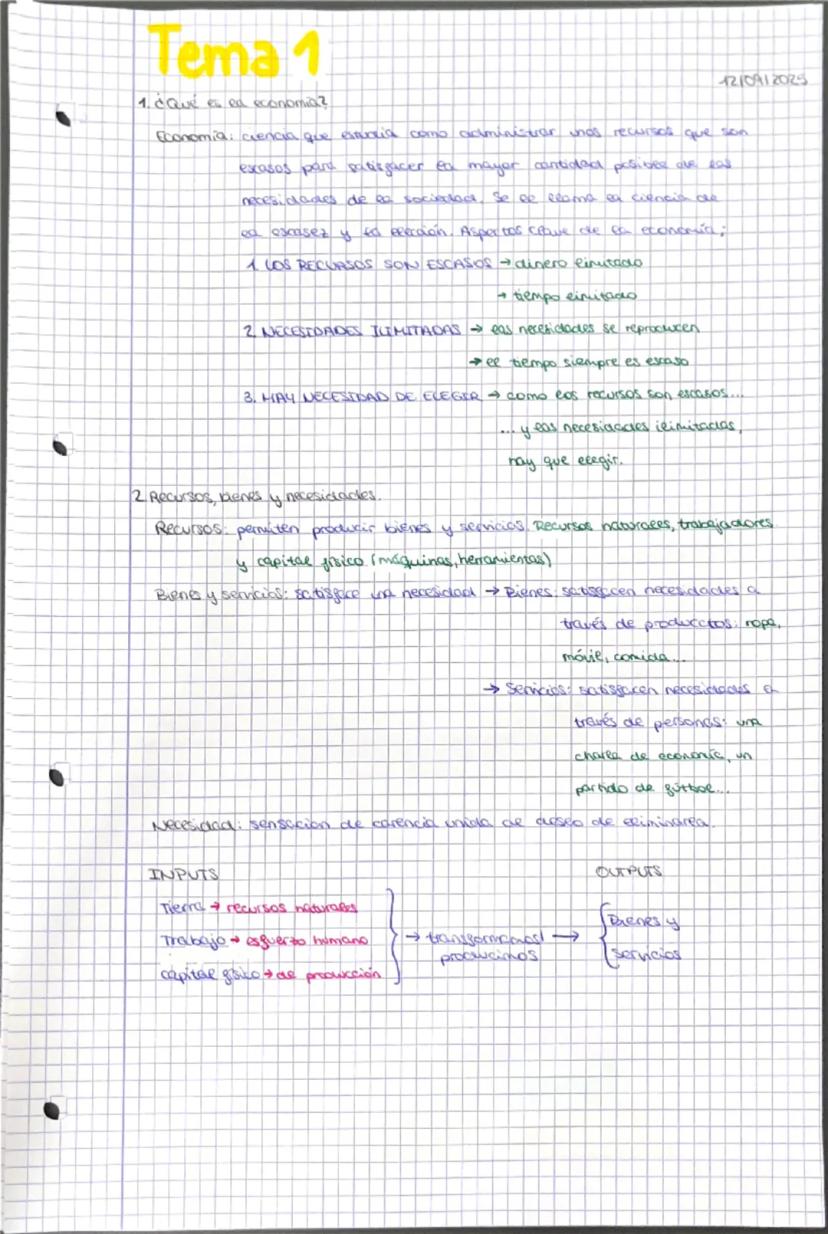 Tema 1
12/09/2025
1. ¿Qué es la economía?
Economía: ciencia que estudia como administrar unos recursos que son
escasos para satisfacer la mayor cantidad posible de las
necesidades de la sociedad. Se le llama la ciencia de
la escasez y la elección. Aspectos clave de la economía:
1. LOS RECURSOS SON ESCASOS → dinero limitado
→ tiempo limitado
2. NECESIDADES ILIMITADAS → las necesidades se reproducen
→ el tiempo siempre es escaso
3. HAY NECESIDAD DE ELEGIR → como los recursos son escasos...
... y las necesidades ilimitadas,
hay que elegir.
2. Recursos, bienes y necesidades.
Recursos: permiten producir bienes y servicios. Recursos naturales, trabajadores
y capital físico (máquinas, herramientas)
Bienes y servicios: satisface una necesidad → Bienes: satisfacen necesidades a
través de productos: ropa,
móvil, comida...
→ Servicios: satisfacen necesidades a
través de personas: una
charla de economía, un
partido de fútbol...
Necesidad: sensación de carencia unida de deseo de eliminarla.
INPUTS OUTPUTS
Tierra → recursos naturales
Trabajo → esfuerzo humano
capital físico → de producción
→ transformamos/ →
producimos
Bienes y
servicios